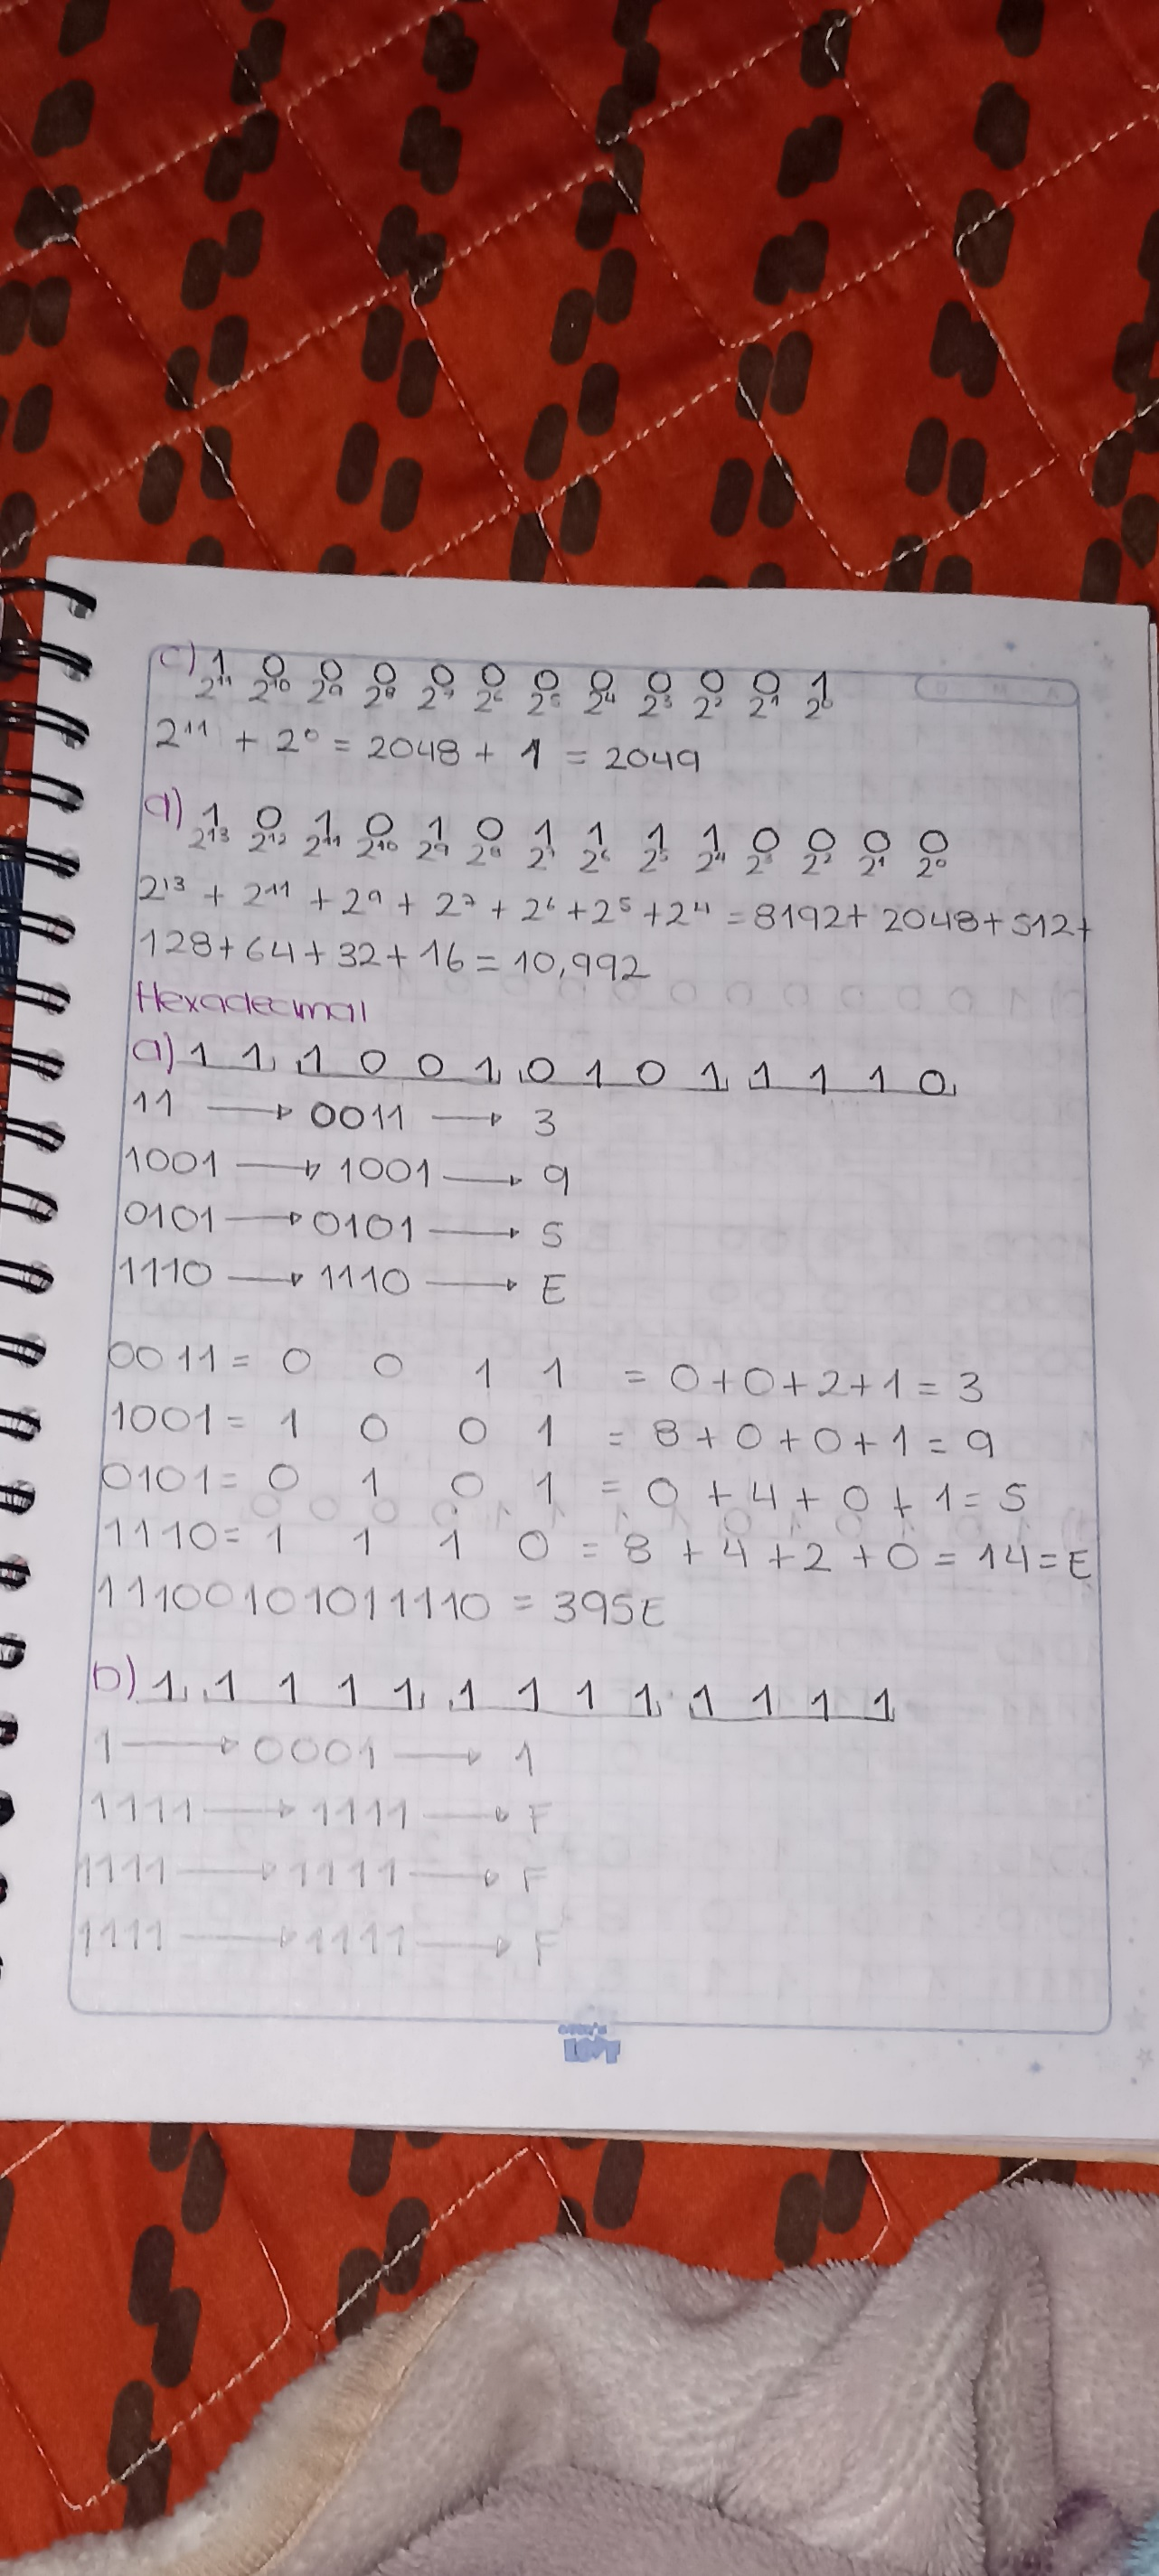 c) 1 0 0 0 0 0 0 0 0 0 0 1
2¹¹ 2¹⁰ 2⁹ 2⁸ 2⁷ 2⁶ 2⁵ 2⁴ 2³ 2² 2¹ 2⁰
2¹¹ + 2⁰ = 2048 + 1 = 2049
d) 1 0 1 0 1 0 1 1 1 1 0 0 0 0
2¹³ 2¹² 2¹¹ 2¹⁰ 2⁹ 2⁸ 2⁷ 2⁶ 2⁵ 2⁴ 2³ 2² 2¹ 2⁰
2¹³ + 2¹¹ + 2⁹ + 2⁷ + 2⁶ + 2⁵ + 2⁴ = 8192 + 2048 + 512 +
128 + 64 + 32 + 16 = 10,992
Hexadecimal
a) 1 1 1 0 0 1 0 1 0 1 1 1 1 0
11 → 0011 → 3
1001 → 1001 → 9
0101 → 0101 → 5
1110 → 1110 → E
0011 = 0 0 1 1 = 0+0+2+1 = 3
1001 = 1 0 0 1 = 8+0+0+1 = 9
0101 = 0 1 0 1 = 0+4+0+1 = 5
1110 = 1 1 1 0 = 8+4+2+0 = 14 = E
11100101011110 = 395E
b) 1 1 1 1 1 1 1 1 1 1 1 1 1
1 → 0001 → 1
1111 → 1111 → F
1111 → 1111 → F
1111 → 1111 → F